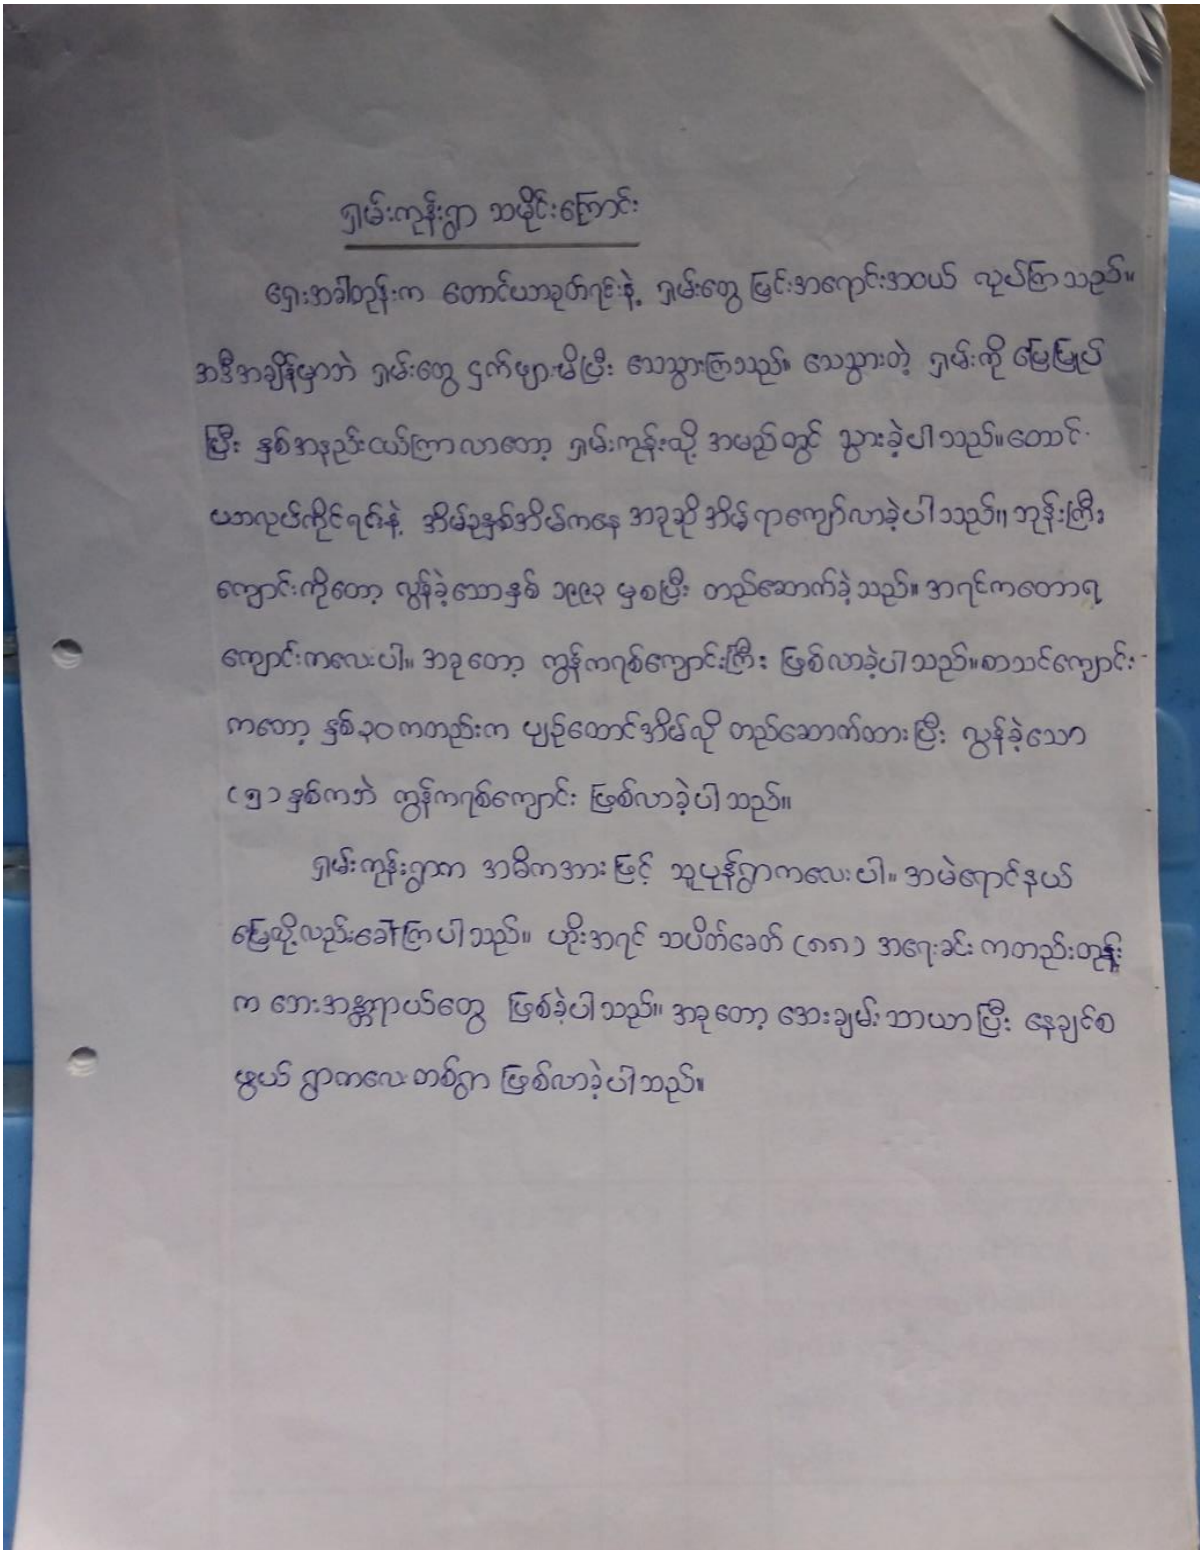 ရှမ်းကုန်းရွာ သမိုင်းကြောင်း
ရှေးအခါတုန်းက တောင်ယာခုတ်ရင်းနဲ့ ရှမ်းတွေ မြင်းအရောင်းအဝယ် လုပ်ကြသည်။
အဒီအချိန်မှာဘဲ ရှမ်းတွေ ငှက်ဖျားမိပြီး သေသွားကြသည်။ သေသွားတဲ့ ရှမ်းကို မြေမြှုပ်
ပြီး နှစ်အနည်းငယ်ကြာလာတော့ ရှမ်းကုန်းလို့ အမည်တွင် သွားခဲ့ပါသည်။ တောင်
ယာလုပ်ကိုင်ရင်းနဲ့ အိမ်ခုနှစ်အိမ်ကနေ အခုဆိုအိမ်ရာကျော်လာခဲ့ပါသည်။ ဘုန်းကြီး
ကျောင်းကိုတော့ လွန်ခဲ့သောနှစ် ၁၉၉၃ မှစပြီး တည်ဆောက်ခဲ့သည်။ အရင်ကတောရ
ကျောင်းကလေးပါ။ အခုတော့ ကွန်ကရစ်ကျောင်းကြီး ဖြစ်လာခဲ့ပါသည်။ စာသင်ကျောင်း
ကတော့ နှစ်၃၀ကတည်းက ပျဉ်ထောင်အိမ်လို တည်ဆောက်ထားပြီး လွန်ခဲ့သော
(၅)နှစ်ကဘဲ ကွန်ကရစ်ကျောင်း ဖြစ်လာခဲ့ပါသည်။
ရှမ်းကုန်းရွာက အဓိကအားဖြင့် သူပုန်ရွာကလေးပါ။ အမဲရောင်နယ်
မြေလို့လည်းခေါ်ကြပါသည်။ ဟိုးအရင် သပိတ်ခေတ် (၈၈) အရေးခင်း ကတည်းတုန်း
က ဘေးအန္တရာယ်တွေ ဖြစ်ခဲ့ပါသည်။ အခုတော့ အေးချမ်းသာယာပြီး နေချင်စ
ဖွယ် ရွာကလေးတစ်ရွာ ဖြစ်လာခဲ့ပါသည်။